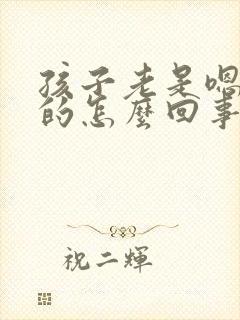 孩子老是嗯
的怎麼回事
祝二輝